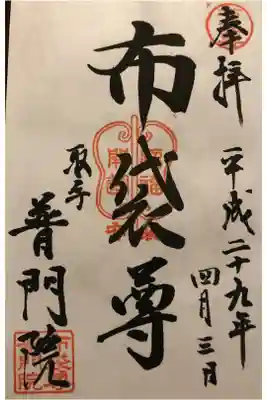 奉拝
平成二十九年
四月三日
布袋尊
原寺
普門院